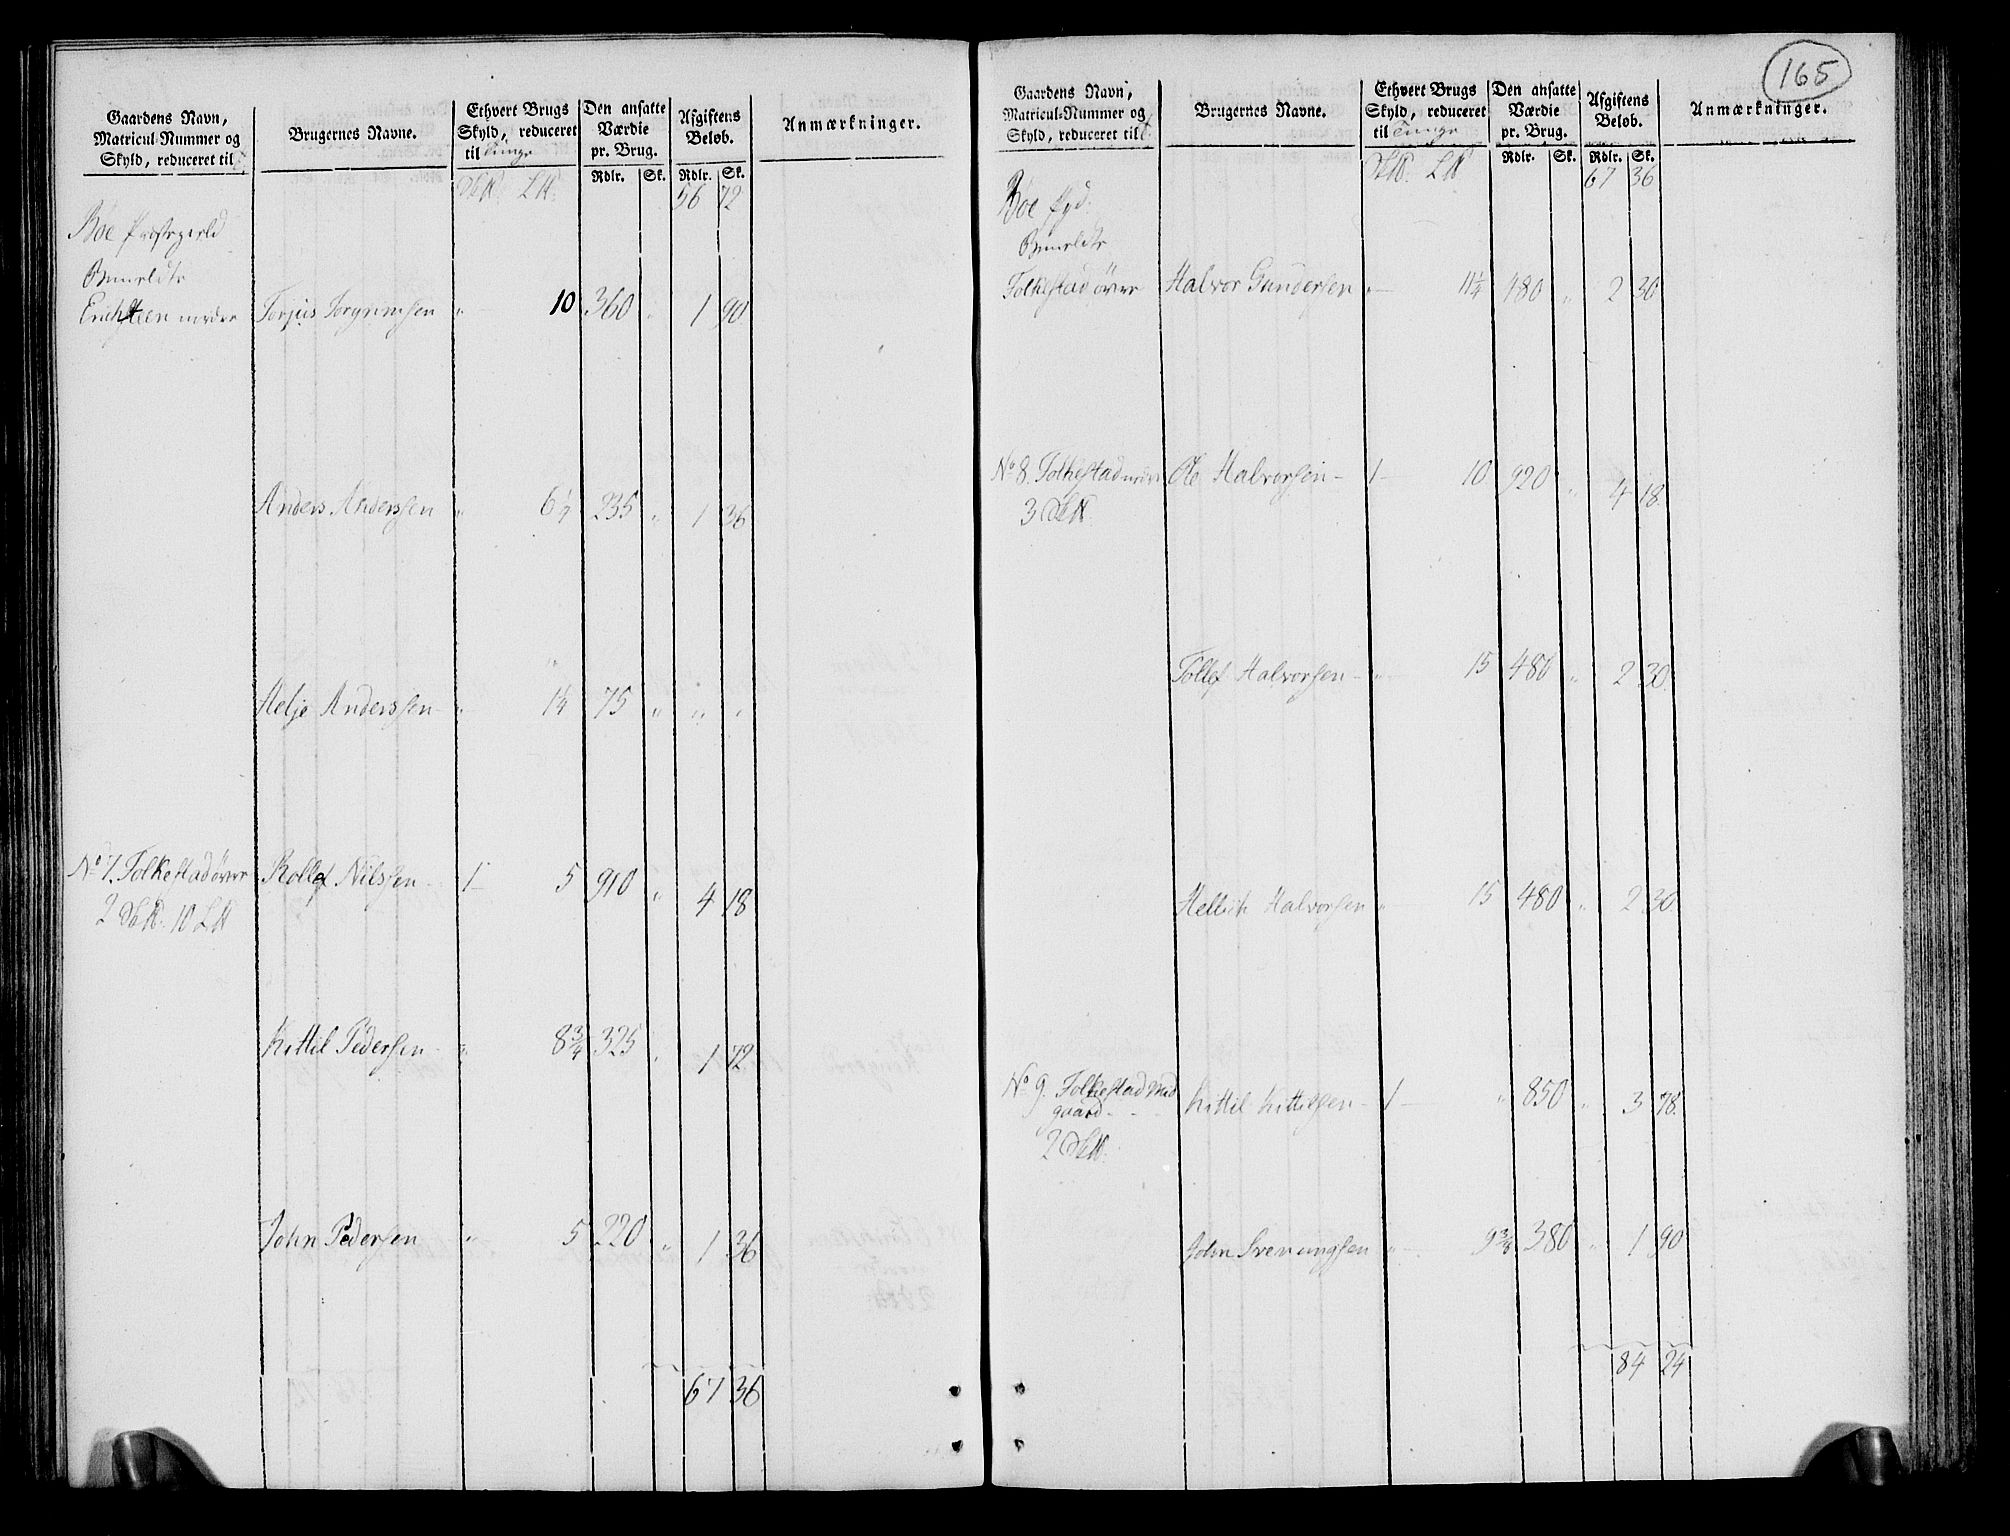 165
Gaardens Navn, Matricul-Nummer og Skyld, reduceret til
Brugernes Navne.
Ethvert Brugs Skyld, reduceret til Tunge
Den ansatte Værdie pr. Brug.
Afgiftens Beløb.
Anmærkninger.
Rdlr. Sk. Rdlr. Sk.
56 72
Bøe Præstegield
Erichsteen nordre Torjus Torgrimsen " 10 360 " 1 90
Anders Anderssen " 6 1/4 235 " 1 36
Helje Anderssen " 1 1/4 75 " " "
No 7. Folkestad øvre Rollef Nilssen 1 5 910 " 4 18
Kittil Pedersen " 8 3/4 325 " 1 72
John Pedersen " 5 220 " 1 36
67 36
Gaardens Navn, Matricul-Nummer og Skyld, reduceret til
Brugernes Navne.
Ethvert Brugs Skyld, reduceret til Tunge
Den ansatte Værdie pr. Brug.
Afgiftens Beløb.
Anmærkninger.
Rdlr. Sk. Rdlr. Sk.
67 36
Bøe
Folkestad øvre Halvor Gundersen " 11 1/4 480 " 2 30
No 8. Folkestad nedre Ole Halvorsen 1 10 920 " 4 18
Tollef Halvorsen " 15 480 " 2 30
Halvorsen " 15 480 " 2 30
No 9. Folkestad Mid
gaard Kittil Kittilssen 1 " 850 " 3 78
John Svenungsen " 9 3/8 380 " 1 90
84 24